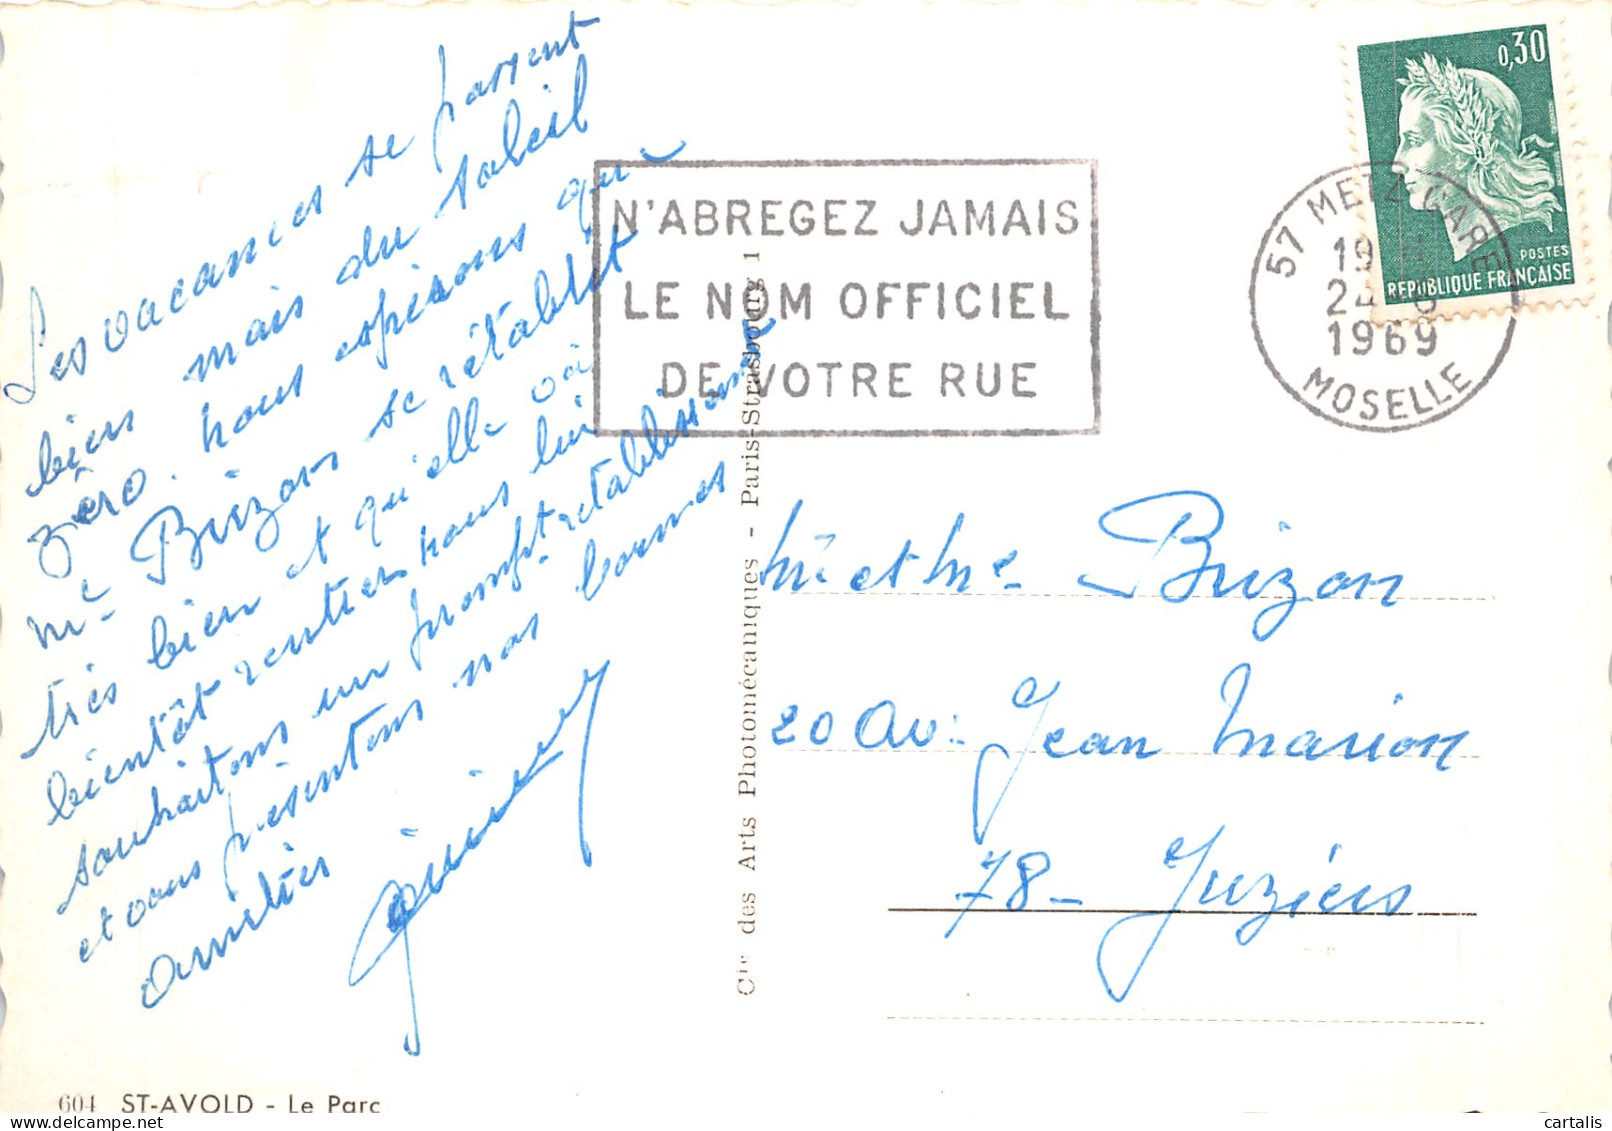 Les vacances se passent
bien mais du soleil
zéro. nous espérons que
Me Brizon se rétablit
très bien et qu'elle va
bientôt rentrer nous lui
souhaitons un prompt rétablissement
et vous présentons nos bonnes
amitiés
N'ABREGEZ JAMAIS
LE NOM OFFICIEL
DE VOTRE RUE
57 METZ GARE
1969
MOSELLE
0,30
POSTES
REPUBLIQUE FRANÇAISE
Mr et Me Brizon
20 Av: Jean Marion
78- Juziers
Cie des Arts Photomécaniques - Paris-Strasbourg 1
604 ST-AVOLD - Le Parc
cartalis
www.delcampe.net